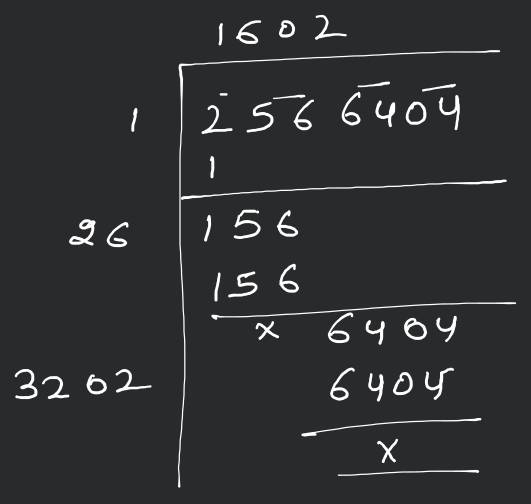 1602
1 2566404
1
26 156
156
x 6404
3202 6404
x